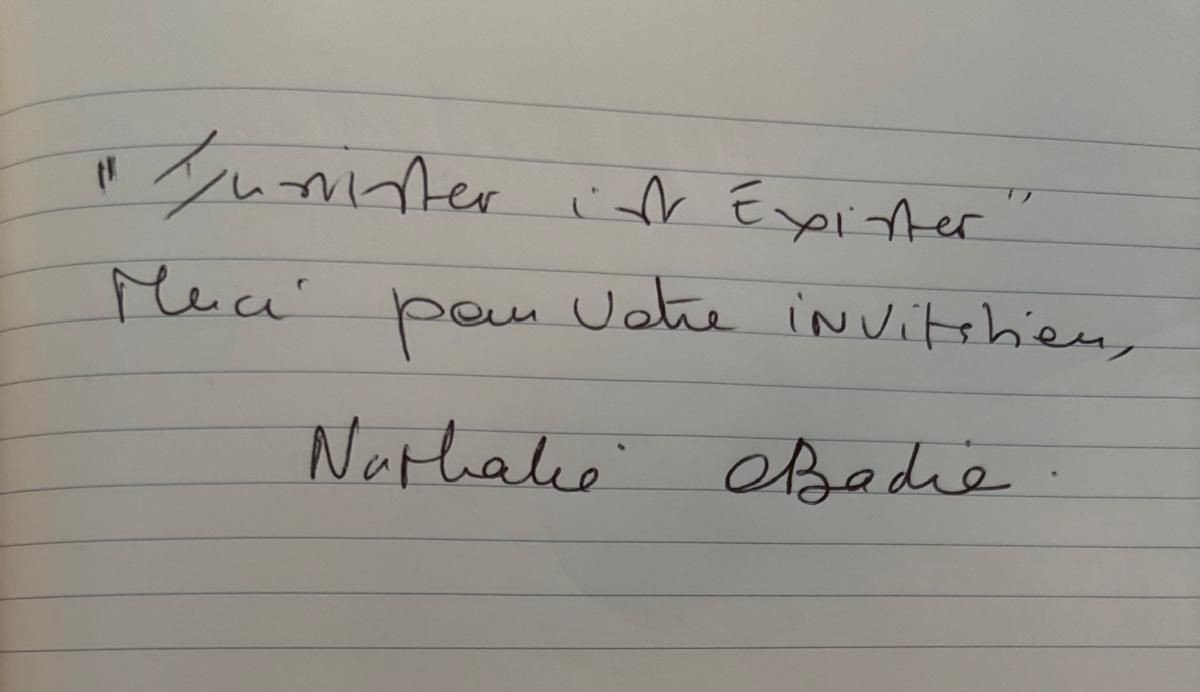 "Insister est Exister"
Merci pour votre invitation,
Nathalie Obadia.